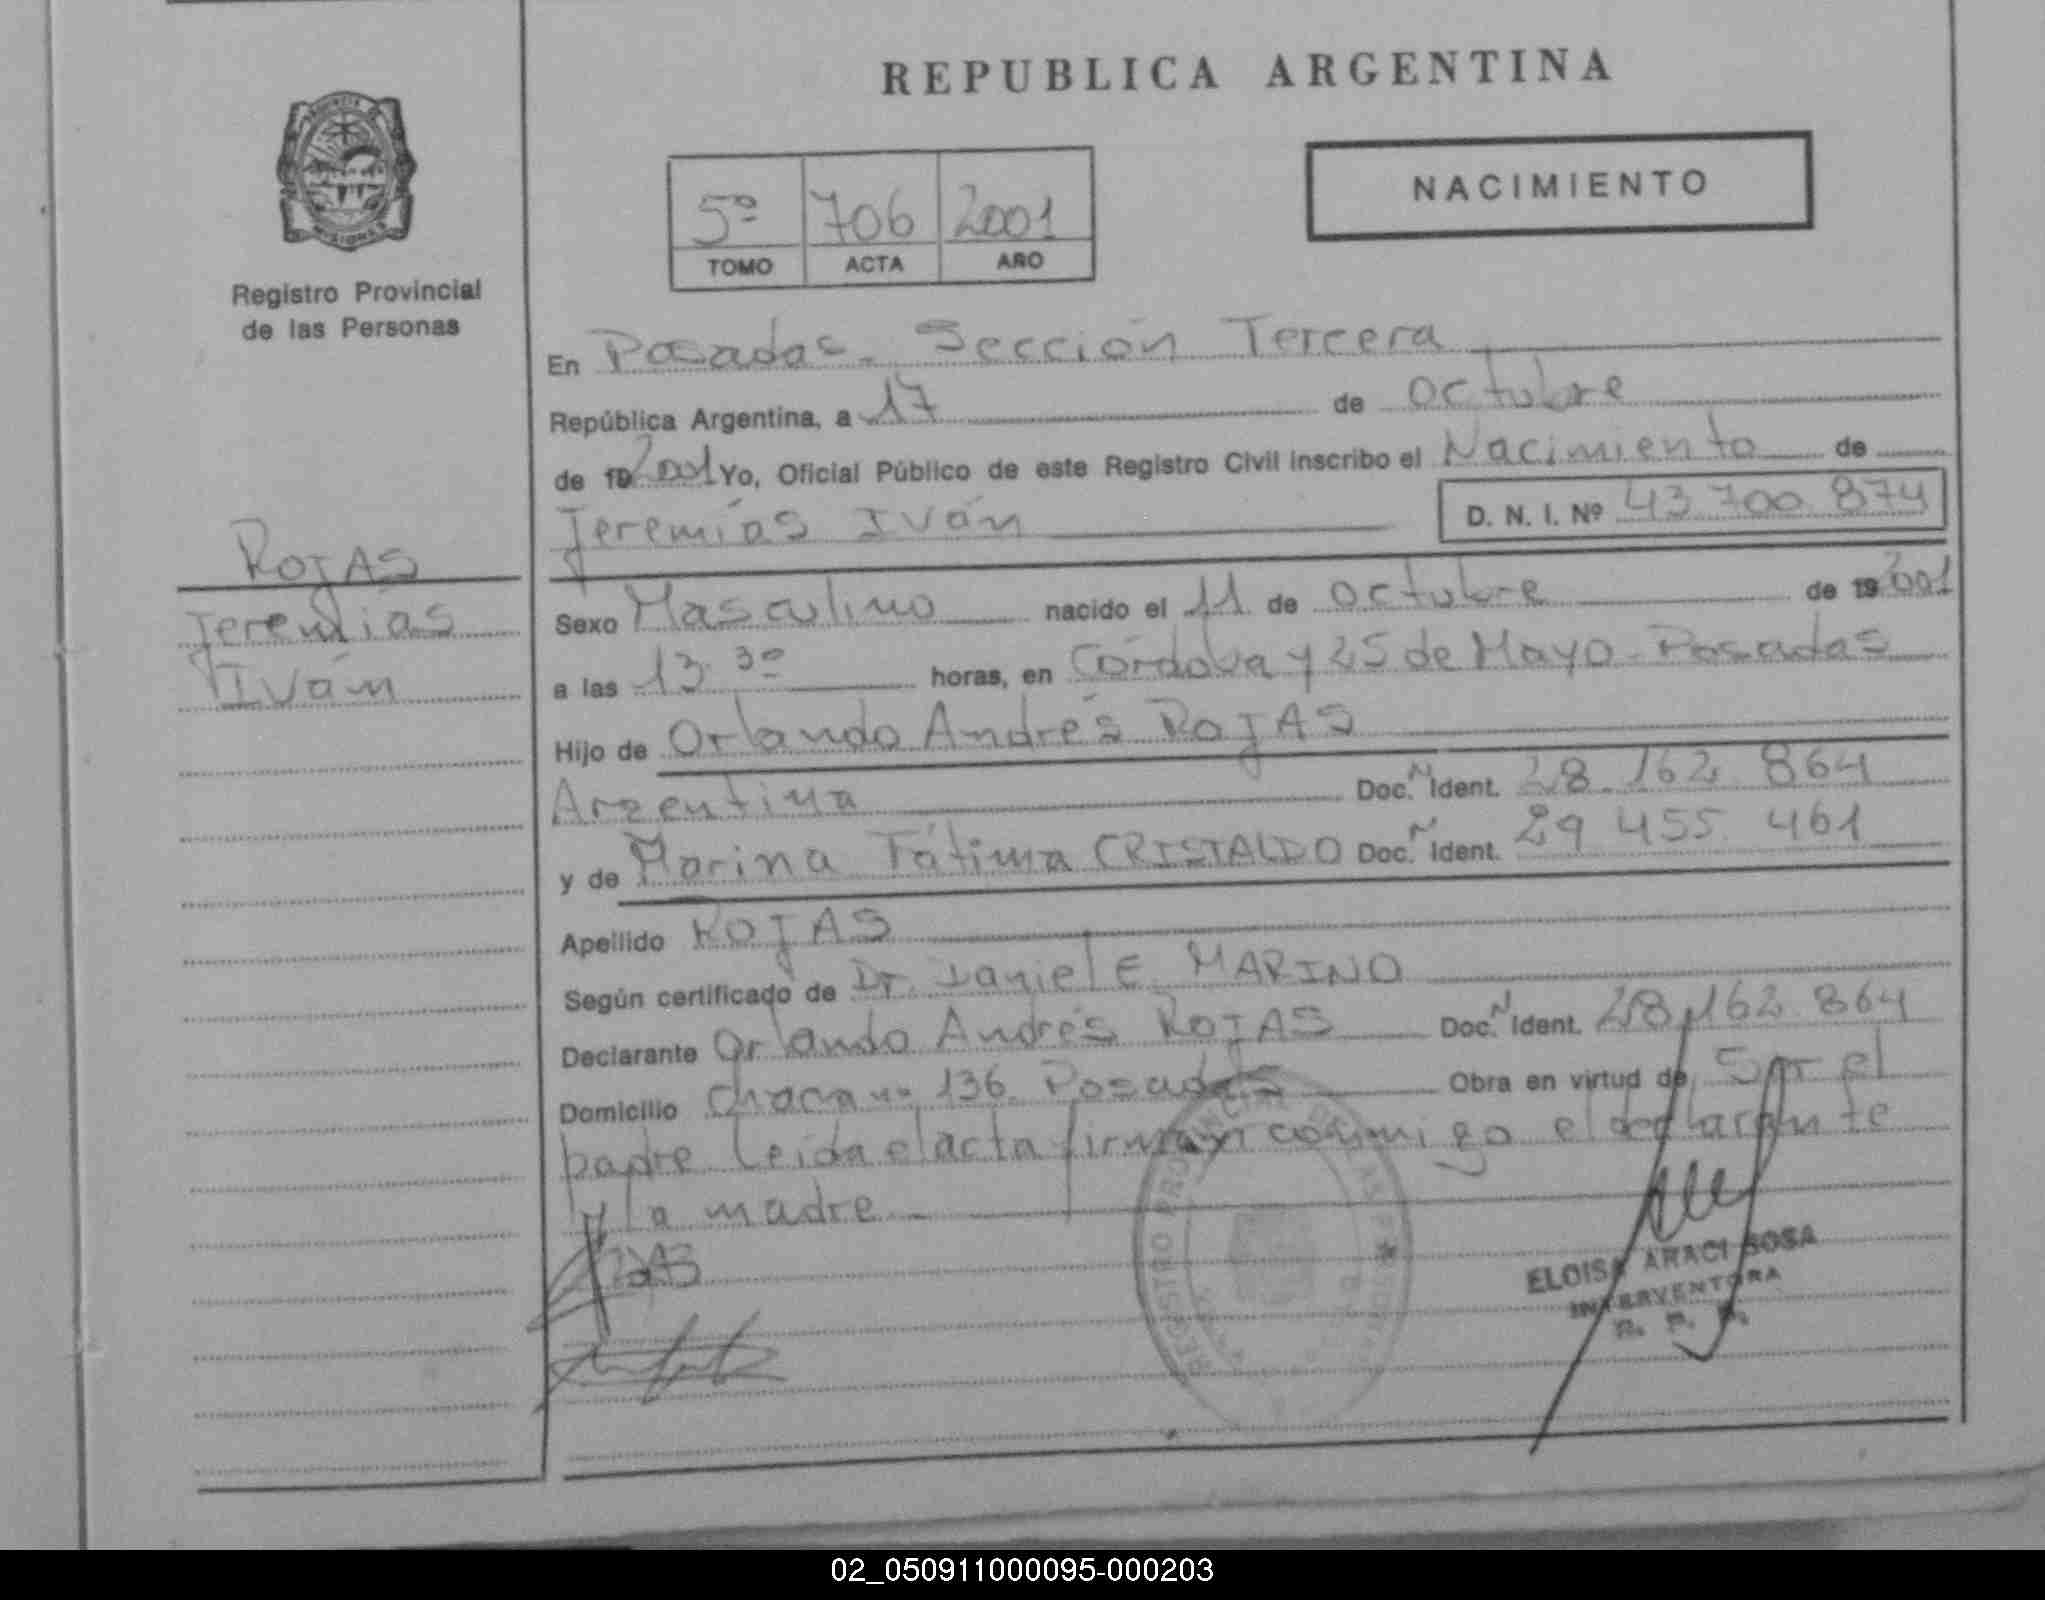 REPUBLICA ARGENTINA
NACIMIENTO
5º 706 2001
TOMO ACTA AÑO
MISIONES
Registro Provincial
de las Personas
ROJAS
Jeremías
Iván
En Posadas - Sección Tercera
República Argentina, a 17 de octubre
de 19 2001 Yo, Oficial Público de este Registro Civil inscribo el Nacimiento de
Jeremías Iván D. N. I. Nº 43 700 874
Sexo Masculino nacido el 11 de octubre de 19 2001
a las 13 30 horas, en Córdova y 25 de Mayo - Posadas
Hijo de Orlando Andrés ROJAS
Argentina Doc. N Ident. 28.162 864
y de Marina Fátima CRISTALDO Doc. N Ident. 29 455 461
Apellido ROJAS
Según certificado de Dr. Daniel E. MARINO
Declarante Orlando Andrés ROJAS Doc. N Ident. 28 162 864
Domicilio Chacra nº 136 Posadas Obra en virtud de Ser el
padre Leída el acta firman conmigo el declarante
y la madre
REGISTRO PROVINCIAL DE LAS PERSONAS
ELOISA ARACI SOSA
INTERVENTORA
R. P. P.
02_050911000095-000203